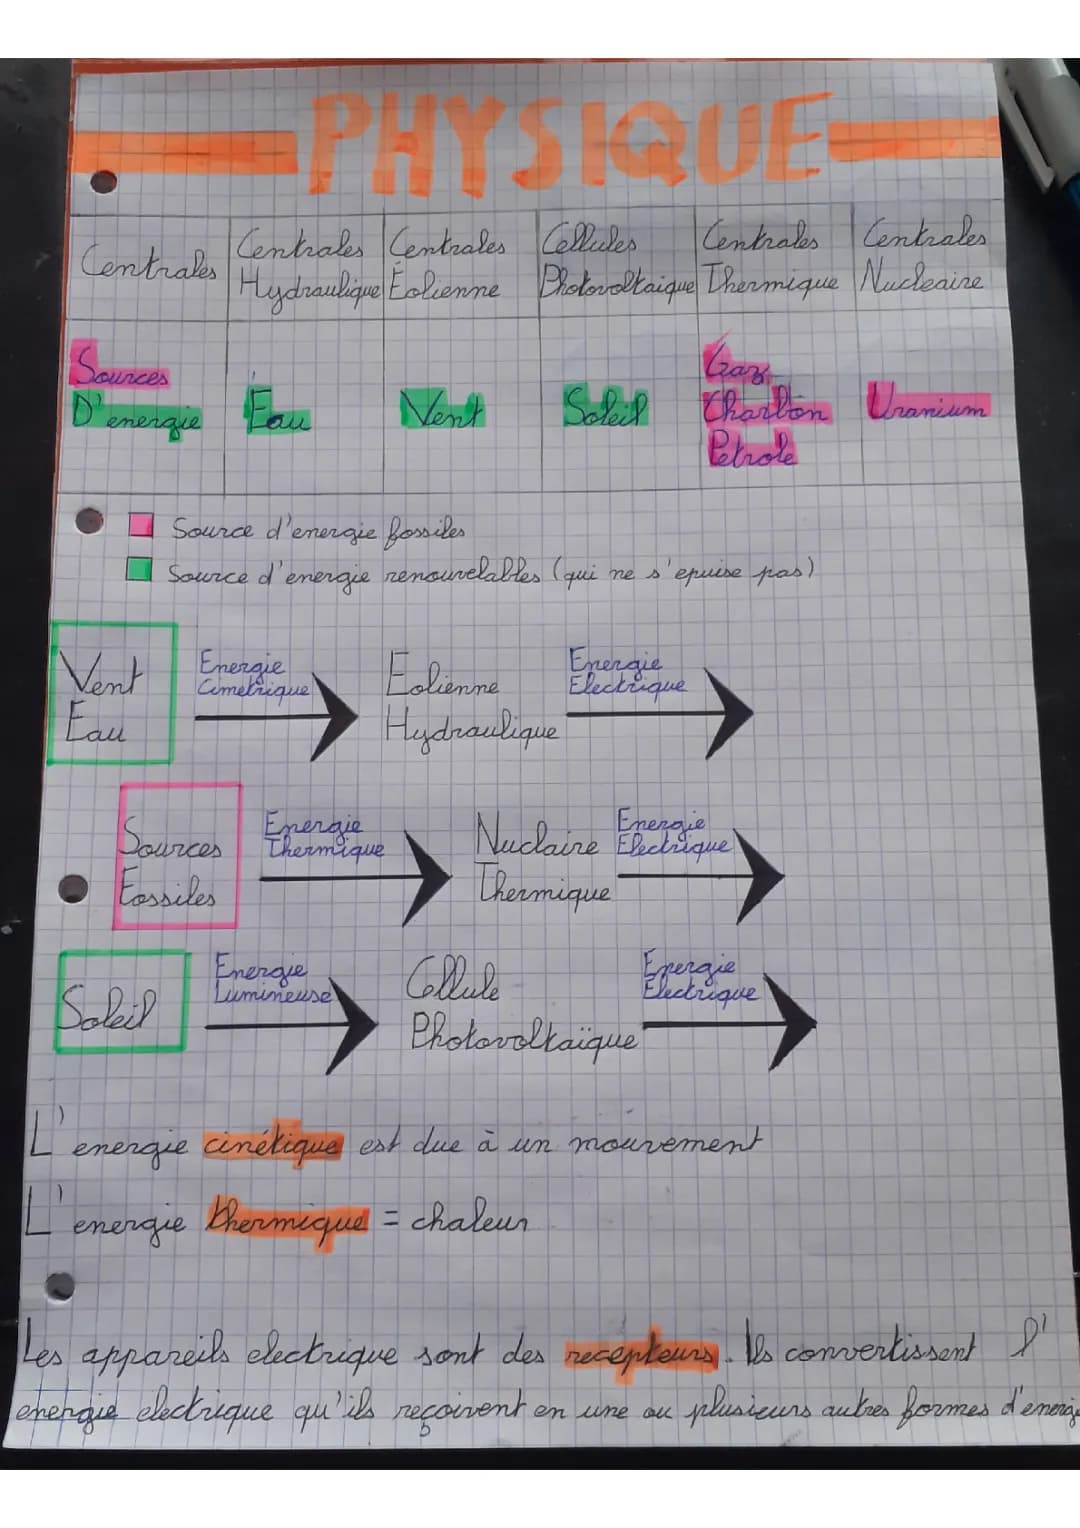 PHYSIQUE
Centrales
Centrales Hydraulique
Centrales Éolienne
Cellules Photovoltaique
Centrales Thermique
Centrales Nucleaire
Sources
D'energie
Eau
Vent
Soleil
Gaz
Charbon
Petrole
Uranium
Source d'energie fossiles
Source d'energie renouvelables (qui ne s'epuise pas)
Vent
Eau
Energie
Cimetrique
Eolienne
Hydraulique
Energie
Electrique
Sources
Fossiles
Energie
Thermique
Nuclaire
Thermique
Energie
Electrique
Soleil
Energie
Lumineuse
Cellule
Photovoltaïque
Energie
Electrique
L'energie cinétique est due à un mouvement
L'energie thermique = chaleur
Les appareils electrique sont des recepteurs. Ils convertissent l'
energie electrique qu'ils reçoivent en une ou plusieurs autres formes d'energie